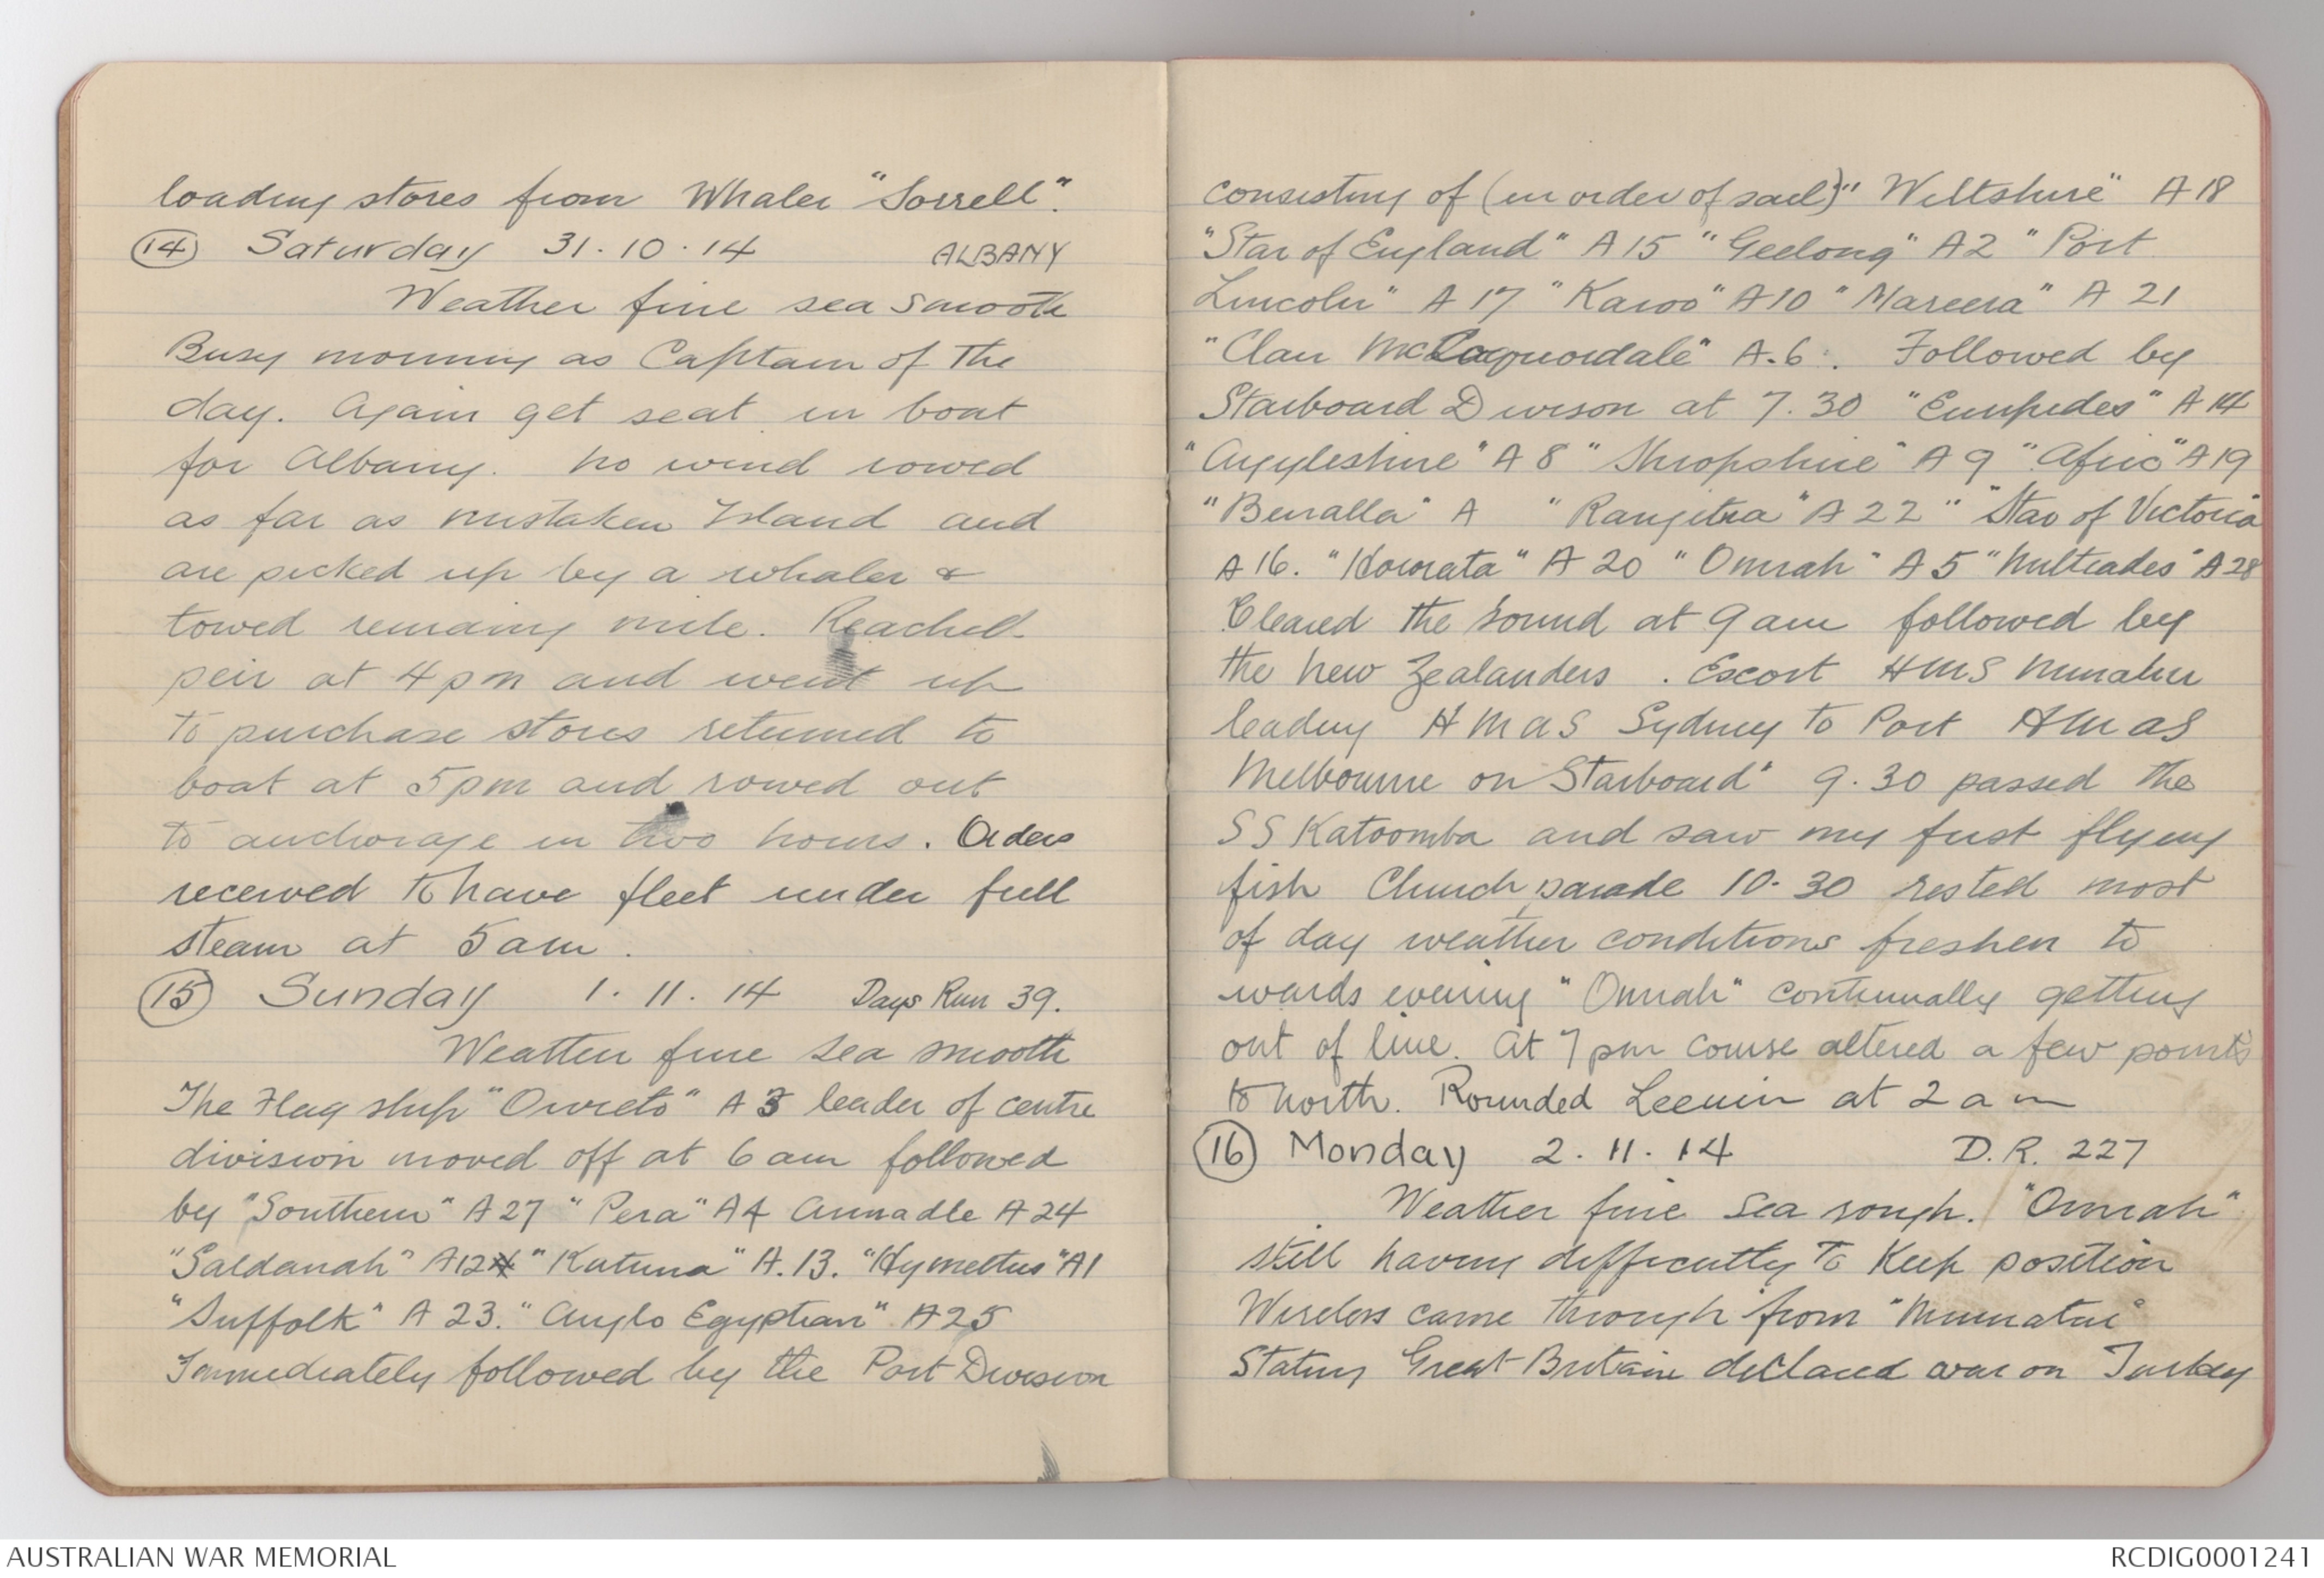 loading stores from Whaler "Sorrell".
(14) Saturday 31.10.14 ALBANY
Weather fine sea smooth
Busy morning as Captain of The
day. Again get seat in boat
for Albany. no wind rowed
as far as mistaken Island and
are picked up by a whaler &
towed remaing mile. Reached
peir at 4pm and went up
to purchase stores returned to
boat at 5pm and rowed out
to anchorage in two hours. Orders
received to have fleet under full
steam at 5am.
(15) Sunday 1.11.14 Days Run 39.
Weather fine sea smooth
The Flag ship "Orvieto" A3 leader of centre
division moved off at 6am followed
by "Southern" A27 "Pera" A4 Armadle A24
"Saldanah" A12 "Katuna" A.13. "Hymettus" A1
"Suffolk" A23. "Anglo Egyptian" A25
Immediately followed by the Port Division
consisting of (in order of sail) "Wiltshire" A18
"Star of England" A15 "Geelong" A2 "Port
Lincoln" A17 "Karoo" A10 "Mareera" A21
"Clan McCorquordale" A.6. Followed by
Starboard Divison at 7.30 "Euripedes" A14
"Argyleshire" A8 "Shropshire" A9 "Afric" A19
"Benalla" A "Rangitra" A22 "Star of Victoria
A16. "Hororata" A20 "Omrah" A5 "Miltiades" A28
Cleared the Sound at 9am followed by
the New Zealanders. Escort HMS Minatur
leading HMAS Sydney to Port HMAS
Melbourne on Starboard" 9.30 passed the
SS Katoomba and saw my first flying
fish Church parade 10.30 rested most
of day weather conditions freshen to
wards evening "Omrah" continually getting
out of line. At 7pm course altered a few points
to North. Rounded Leeuin at 2am
(16) Monday 2.11.14 D.R. 227
Weather fine Sea rough. "Omrah"
still having difficulty to Keep position
Wireless came through from "Minatur"
Stating Great Britain declared war on Turkey
AUSTRALIAN WAR MEMORIAL
RCDIG0001241